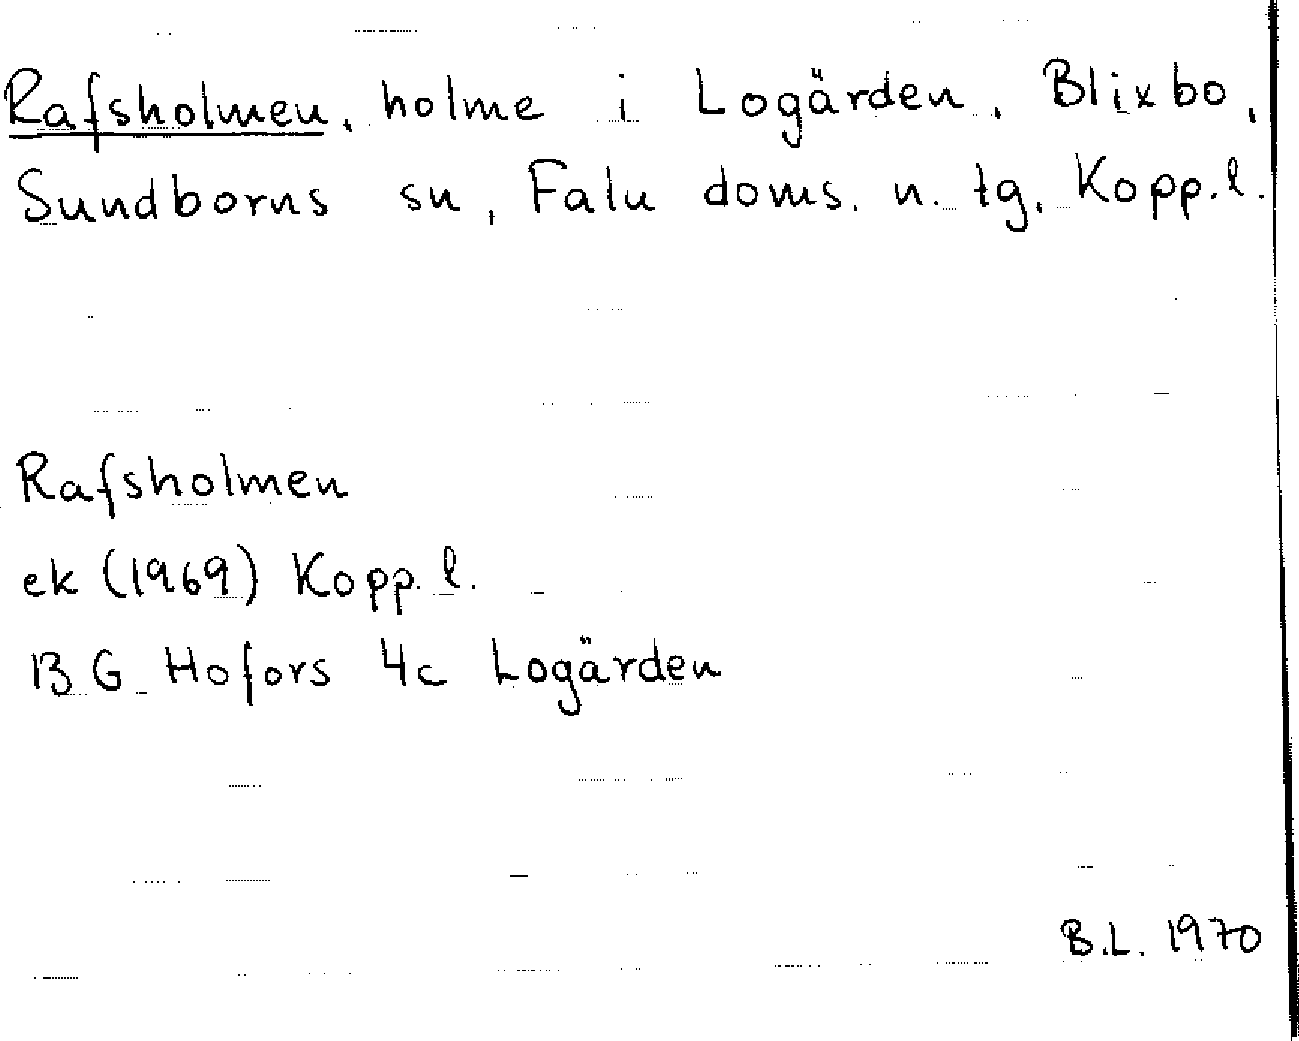 Rafsholmen, holme i Logärden, Blixbo,
Sundborns sn, Falu doms. n. tg, Kopp. l.
Rafsholmen
ek (1969) Kopp. l.
13 G Hofors 4c Logärden
B.L. 1970